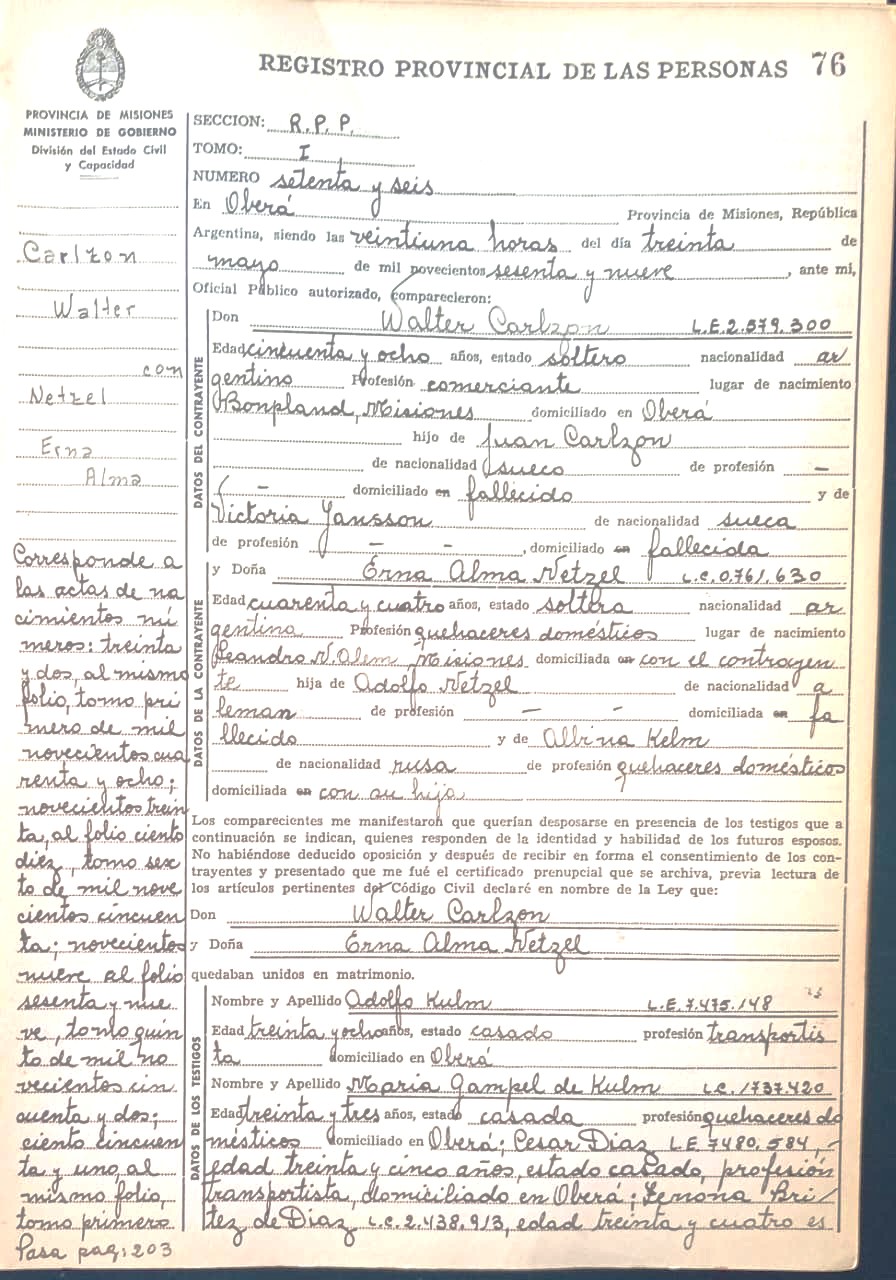 REGISTRO PROVINCIAL DE LAS PERSONAS 76
PROVINCIA DE MISIONES
MINISTERIO DE GOBIERNO
División del Estado Civil
y Capacidad
Carlzon
Walter
con
Netzel
Erna
Alma
Corresponde a
las actas de na
cimientos nú
meros: treinta
y dos, al mismo
folio, tomo pri
mero de mil
novecientos cua
renta y ocho;
novecientos trein
ta, al folio ciento
diez, tomo sex
to de mil nove
cientos cincuen
ta; novecientos
nueve al folio
sesenta y nue
ve, tomo quin
to de mil no
vecientos cin
cuenta y dos;
ciento cincuen
ta y uno, al
mismo folio,
tomo primero
Pasa pag: 203
SECCION: R. P. P.
TOMO: I
NUMERO setenta y seis
En Oberá Provincia de Misiones, República
Argentina, siendo las veintiuna horas del día treinta de
mayo de mil novecientos sesenta y nueve, ante mi,
Oficial Público autorizado, comparecieron:
DATOS DEL CONTRAYENTE
Don Walter Carlzon L.E. 2.579.300
Edad cincuenta y ocho años, estado soltero nacionalidad ar
gentino Profesión comerciante lugar de nacimiento
Bonpland, Misiones domiciliado en Oberá
hijo de Juan Carlzon
de nacionalidad sueco de profesión —
- domiciliado en fallecido y de
Victoria Jansson de nacionalidad sueca
de profesión - - , domiciliado en fallecida
DATOS DE LA CONTRAYENTE
y Doña Erna Alma Netzel L.C. 0.761.630
Edad cuarenta y cuatro años, estado soltera nacionalidad ar
gentina Profesión quehaceres domésticos lugar de nacimiento
Leandro N. Alem, Misiones domiciliada en con el contrayen
te hija de Adolfo Netzel de nacionalidad a
leman de profesión — — domiciliada en fa
llecido y de Albina Kelm
de nacionalidad rusa de profesión quehaceres domésticos
domiciliada en con su hija
Los comparecientes me manifestaron que querían desposarse en presencia de los testigos que a
continuación se indican, quienes responden de la identidad y habilidad de los futuros esposos.
No habiéndose deducido oposición y después de recibir en forma el consentimiento de los con-
trayentes y presentado que me fué el certificado prenupcial que se archiva, previa lectura de
los artículos pertinentes del Código Civil declaré en nombre de la Ley que:
Don Walter Carlzon
y Doña Erna Alma Netzel
quedaban unidos en matrimonio.
DATOS DE LOS TESTIGOS
Nombre y Apellido Adolfo Kulm L.E. 7.475.148
Edad treinta y ocho años, estado casado profesión transportis
ta domiciliado en Oberá
Nombre y Apellido Maria Gampel de Kulm L.C. 1737.420
Edad treinta y tres años, estado casada profesión quehaceres do
mésticos domiciliado en Oberá; Cesar Diaz L.E. 7480.584, -
edad treinta y cinco años, estado casado, profesión
transportista, domiciliado en Oberá; Bri
tez de Diaz L.C. 2.438.913, edad treinta y cuatro es